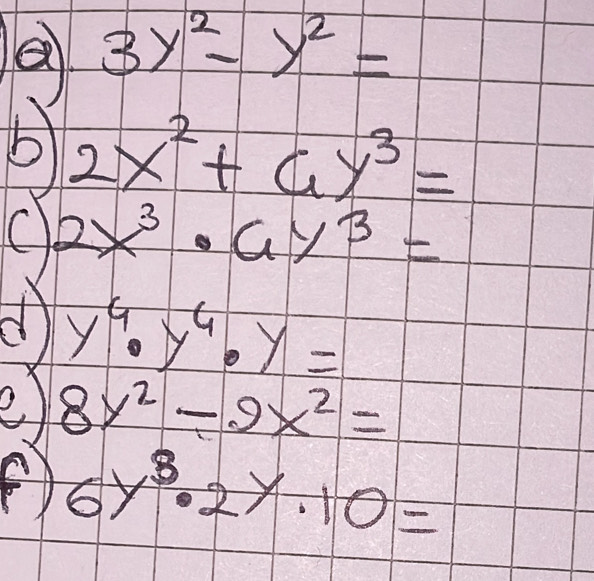 a) 3y² - y² =
b) 2x² + ay³ =
c) 2x³ · ay³ =
d) y⁴ · y⁴ · y =
e) 8y² - 9x² =
f) 6y³ · 2y · 10 =